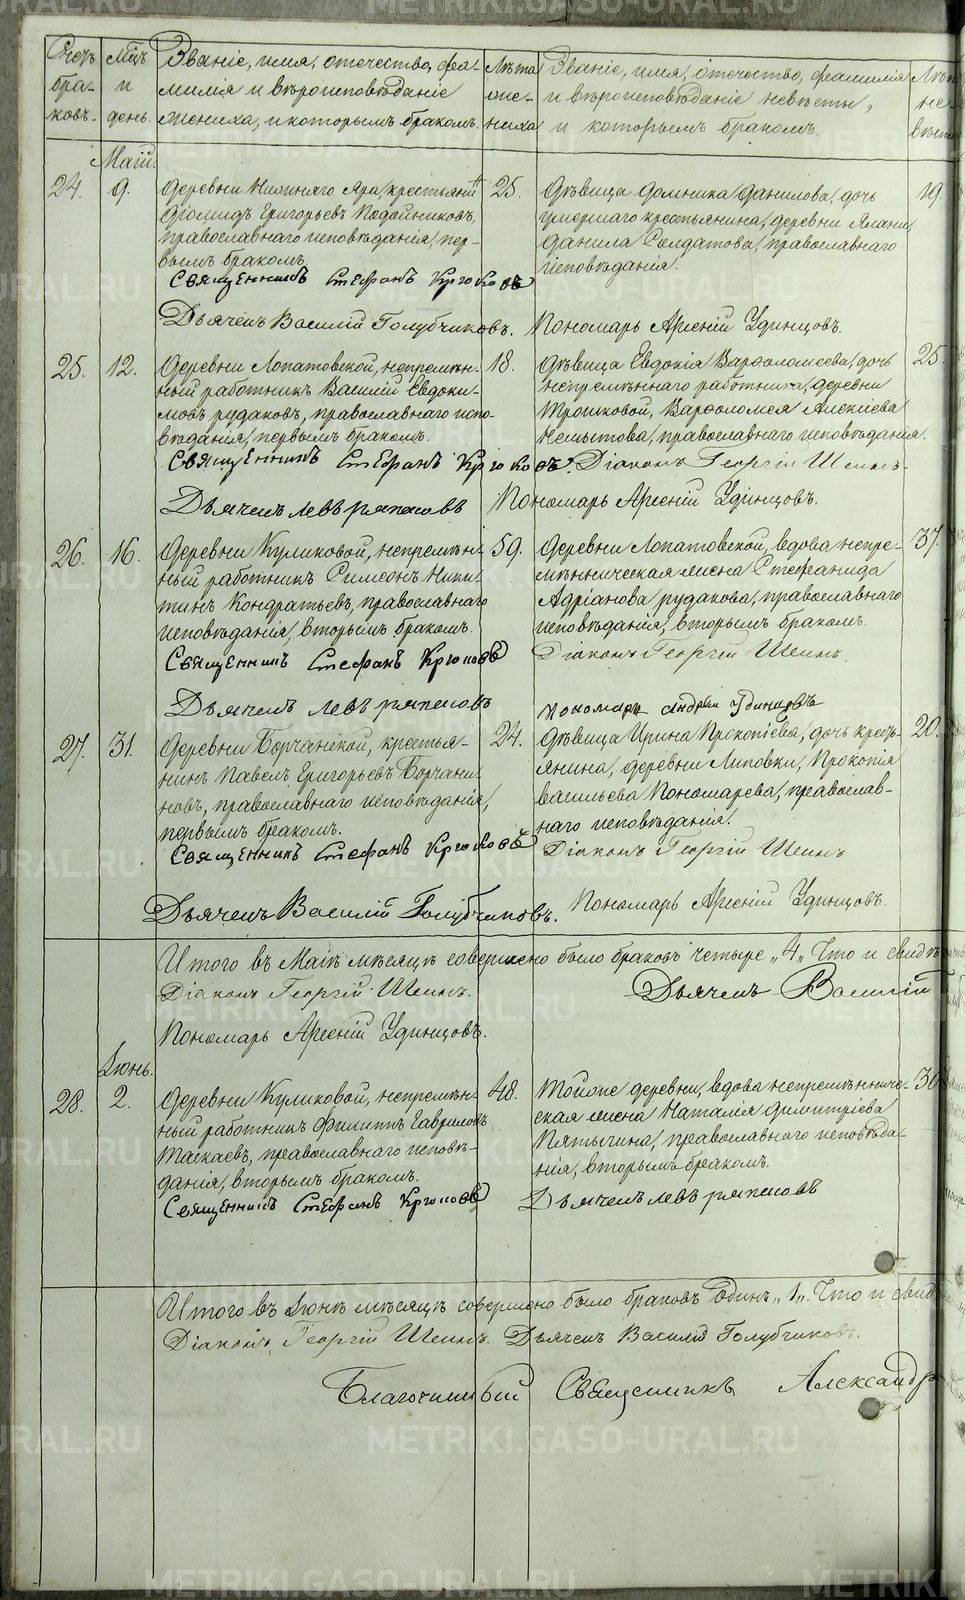 Счетъ браковъ.
Мѣсяцъ и день.
Званіе, имя, отечество, фамилія и вѣроисповѣданіе жениха, и которымъ бракомъ.
Лѣта жениха
Званіе, имя, отечество, фамилія и вѣроисповѣданіе невѣсты, и которымъ бракомъ.
Лѣта невѣсты
Маій.
24. 9.
Деревни Нижняго Яра, крестьянинъ
Діомидъ Григорьевъ Подойниковъ,
православнаго исповѣданія, пер-
вымъ бракомъ.
25.
Дѣвица Домника Данилова, дочь
умершаго крестьянина, деревни
Данила Солдатова, православнаго
исповѣданія.
19.
Священникъ Стефанъ Крюковъ
Дьячекъ Василій Голубчиковъ. Пономарь Арсеній Удинцовъ.
25. 12.
Деревни Лопатовской, непремѣн-
ный работникъ Василій Евдоки-
мовъ Рудаковъ, православнаго испо-
вѣданія, первымъ бракомъ.
18.
Дѣвица Евдокія Варѳоломеева, дочь
непремѣннаго работника, деревни
Трошковой, Варѳоломея Алексіева
Немытова, православнаго исповѣданія.
25.
Священникъ Стефанъ Крюковъ. Діаконъ Георгій Шеинъ
Дьячекъ Левъ Ряпасовъ Пономарь Арсеній Удинцовъ.
26. 16.
Деревни Куликовой, непремѣн-
ный работникъ Симеонъ Ники-
тинъ Кондратьевъ, православнаго
исповѣданія, вторымъ бракомъ.
59.
Деревни Лопатовской, вдова непре-
мѣнническая жена Стефанида
Адріанова Рудакова, православнаго
исповѣданія, вторымъ бракомъ.
37.
Священникъ Стефанъ Крюковъ Діаконъ Георгій Шеинъ.
Дьячекъ Левъ Ряпасовъ Пономарь Андрей Удинцовъ
27. 31.
Деревни Борчанской, крестья-
нинъ Павелъ Григорьевъ Борчани-
новъ, православнаго исповѣданія,
первымъ бракомъ.
24.
Дѣвица Ирина Прокопіева, дочь кресть-
янина, деревни Липовки, Прокопія
Васильева Пономарева, православ-
наго исповѣданія.
20.
Священникъ Стефанъ Крюковъ Діаконъ Георгій Шеинъ
Дьячекъ Василій Голубчиковъ. Пономарь Арсеній Удинцовъ.
Итого въ Маіѣ мѣсяцѣ совершено было браковъ четыре „4„ Что и свидѣ
Діаконъ Георгій Шеинъ. Дьячекъ Василій
Пономарь Арсеній Удинцовъ.
Іюнь.
28. 2.
Деревни Куликовой, непремѣн-
ный работникъ Филиппъ Гавриловъ
Таскаевъ, православнаго исповѣ-
данія, вторымъ бракомъ.
48.
Тойже деревни, вдова непремѣнниче-
ская жена Наталія Димитріева
Пятыгина, православнаго исповѣда-
нія, вторымъ бракомъ.
Священникъ Стефанъ Крюковъ Дьячекъ Левъ Ряпасовъ
Итого въ Іюнѣ мѣсяцѣ совершено было браковъ Одинъ „1„. Что и свид
Діаконъ Георгій Шеинъ. Дьячекъ Василій Голубчиковъ.
Благочинный Священникъ Александръ
METRIKI.GASO-URAL.RU